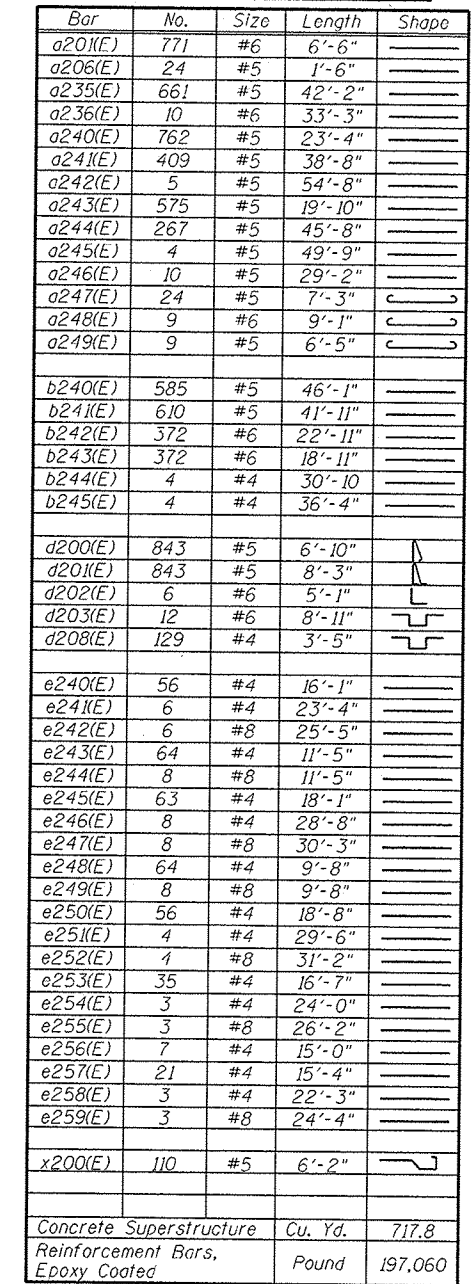 Bar No. Size Length Shape
a201(E) 771 #6 6'-6"
a206(E) 24 #5 1'-6"
a235(E) 661 #5 42'-2"
a236(E) 10 #6 33'-3"
a240(E) 762 #5 23'-4"
a241(E) 409 #5 38'-8"
a242(E) 5 #5 54'-8"
a243(E) 575 #5 19'-10"
a244(E) 267 #5 45'-8"
a245(E) 4 #5 49'-9"
a246(E) 10 #5 29'-2"
a247(E) 24 #5 7'-3"
a248(E) 9 #6 9'-1"
a249(E) 9 #5 6'-5"
b240(E) 585 #5 46'-1"
b241(E) 610 #5 41'-11"
b242(E) 372 #6 22'-11"
b243(E) 372 #6 18'-11"
b244(E) 4 #4 30'-10
b245(E) 4 #4 36'-4"
d200(E) 843 #5 6'-10"
d201(E) 843 #5 8'-3"
d202(E) 6 #6 5'-1"
d203(E) 12 #6 8'-11"
d208(E) 129 #4 3'-5"
e240(E) 56 #4 16'-1"
e241(E) 6 #4 23'-4"
e242(E) 6 #8 25'-5"
e243(E) 64 #4 11'-5"
e244(E) 8 #8 11'-5"
e245(E) 63 #4 18'-1"
e246(E) 8 #4 28'-8"
e247(E) 8 #8 30'-3"
e248(E) 64 #4 9'-8"
e249(E) 8 #8 9'-8"
e250(E) 56 #4 18'-8"
e251(E) 4 #4 29'-6"
e252(E) 4 #8 31'-2"
e253(E) 35 #4 16'-7"
e254(E) 3 #4 24'-0"
e255(E) 3 #8 26'-2"
e256(E) 7 #4 15'-0"
e257(E) 21 #4 15'-4"
e258(E) 3 #4 22'-3"
e259(E) 3 #8 24'-4"
x200(E) 110 #5 6'-2"
Concrete Superstructure Cu. Yd. 717.8
Reinforcement Bars,
Epoxy Coated Pound 197,060